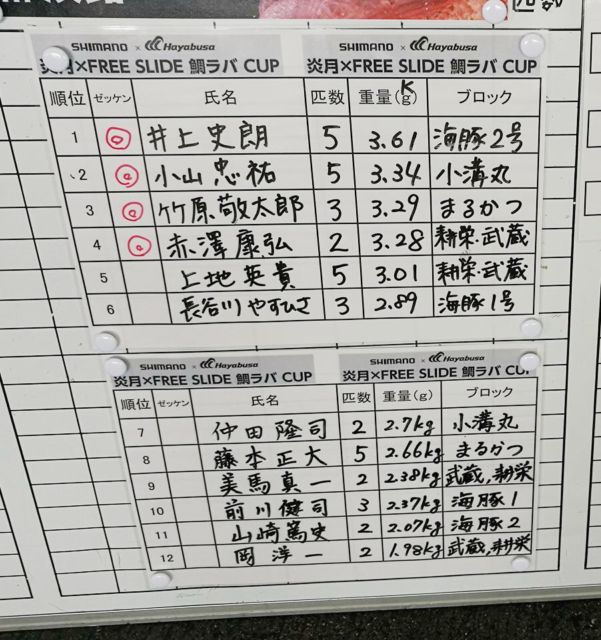 SHIMANO × Hayabusa SHIMANO × Hayabusa
炎月×FREE SLIDE 鯛ラバ CUP 炎月×FREE SLIDE 鯛ラバ CUP
順位 ゼッケン 氏名 匹数 重量(kg) ブロック
1 井上史朗 5 3.61 海豚2号
2 小山忠祐 5 3.34 小溝丸
3 竹原敬太郎 3 3.29 まるかつ
4 赤澤康弘 2 3.28 耕栄・武蔵
5 上地英貴 5 3.01 耕栄・武蔵
6 長谷川やすひさ 3 2.89 海豚1号
SHIMANO × Hayabusa SHIMANO × Hayabusa
炎月×FREE SLIDE 鯛ラバ CUP 炎月×FREE SLIDE 鯛ラバ CUP
順位 ゼッケン 氏名 匹数 重量(g) ブロック
7 仲田隆司 2 2.7kg 小溝丸
8 藤本正大 5 2.66kg まるかつ
9 美馬真一 2 2.38kg 武蔵,耕栄
10 前川健司 3 2.37kg 海豚1
11 山崎篤史 2 2.07kg 海豚2
12 岡洋一 2 1.98kg 武蔵,耕栄